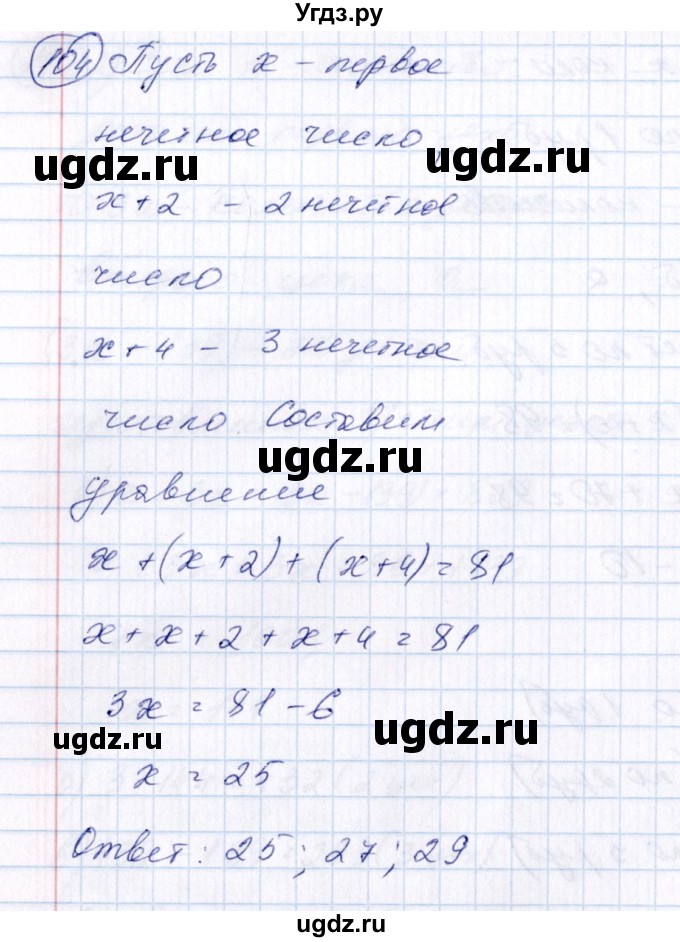 Угдз.ру
104 Пусть x – первое
нечетное число,
ugdz.ru
ugdz.ru
x+2 – 2 нечетное
число
x+4 – 3 нечетное
число. Составим
ugdz.ru
уравнение
x+(x+2)+(x+4)=81
x+x+2+x+4=81
3x=81-6
ugdz.ru
ugdz.ru
x=25
Ответ: 25; 27; 29
ugdz.ru